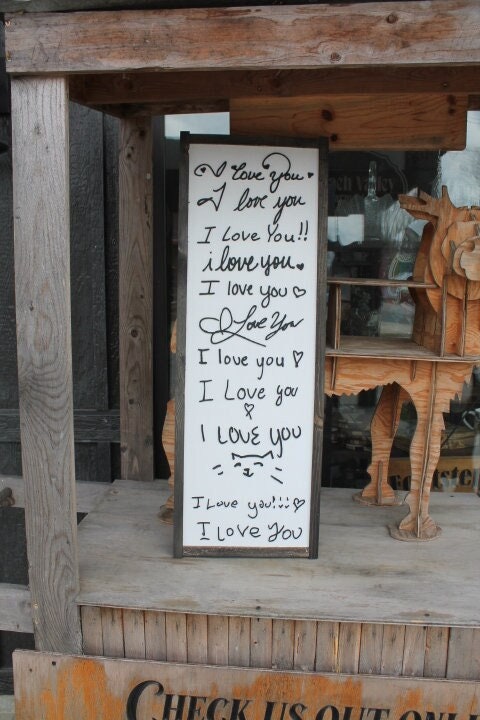 I love you
I love you
I Love You!!
i love you
I love you
I Love You
I love you
I Love you
I LOVE you
I Love you!!!
I Love You
CHECK US OUT